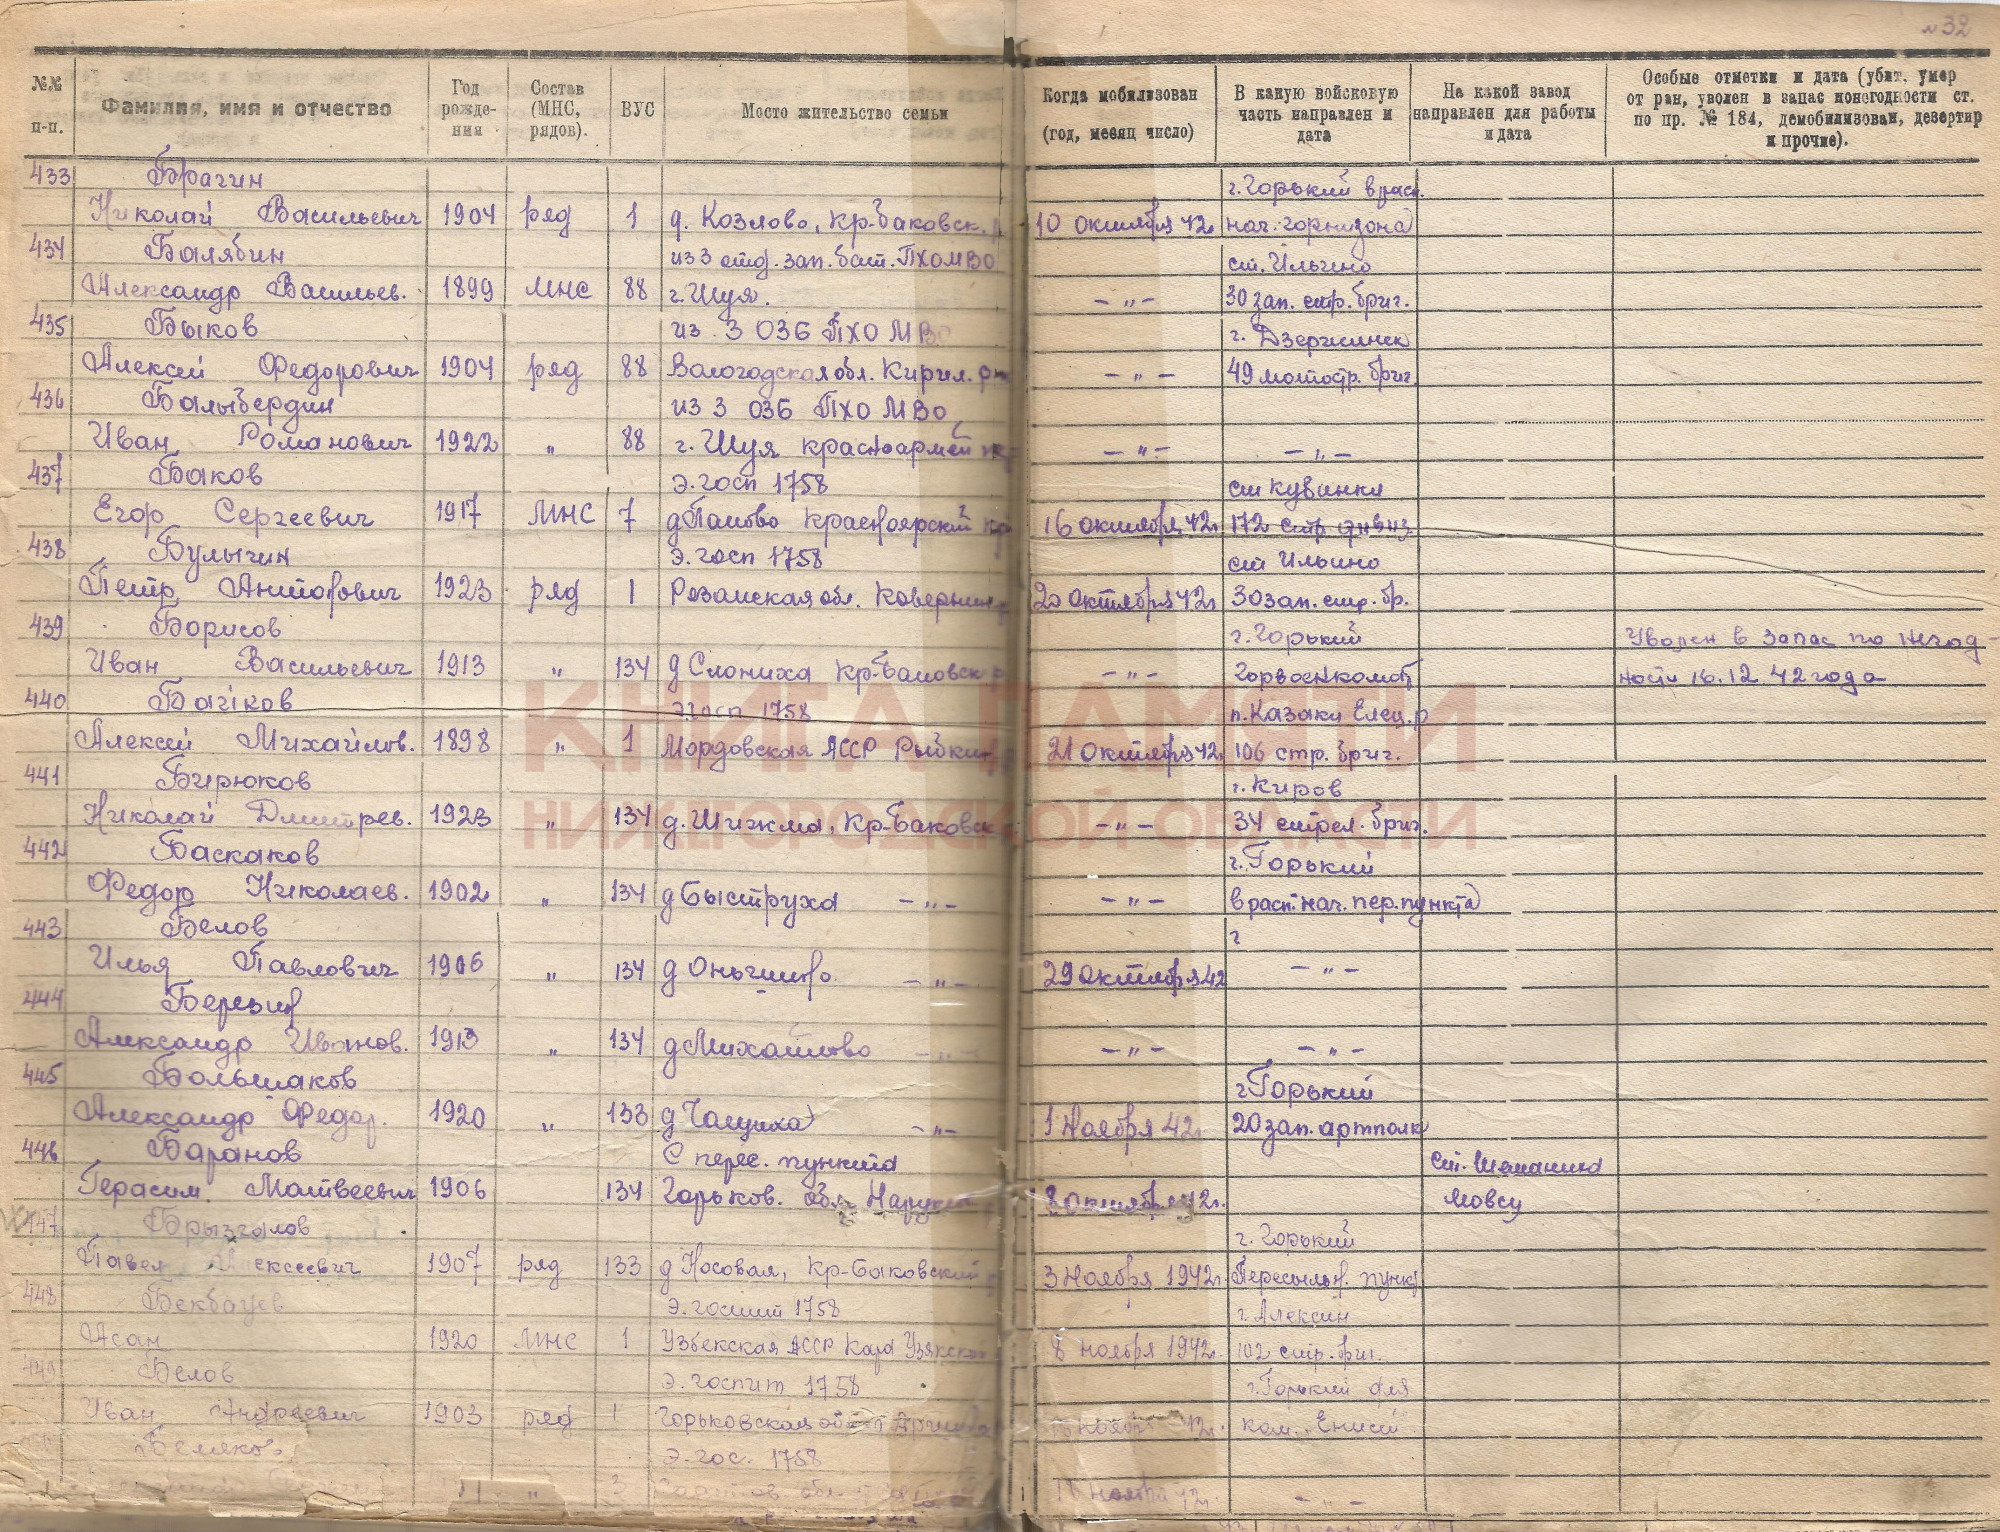 № 32
№№ п-п.
Фамилия, имя и отчество
Год рождения
Состав (МНС, рядов).
ВУС
Место жительство семьи
Когда мобилизован (год, месяц число)
В какую войсковую часть направлен и дата
На какой завод направлен для работы и дата
Особые отметки и дата (убит, умер от ран, уволен в запас поногодности ст. по пр. № 184, демобилизован, дезертир и прочие).
433 Брагин г. Горький в расп.
Николай Васильевич 1904 ряд 1 д. Козлово, Кр-Баковск. р 10 октября 42г. нач. горнизона
434 Балябин из 3 отд. зап. бат. ПХОМВО ст. Ильино
Александр Васильев. 1899 МНС 88 г. Шуя. — " — 30 зап. стр. бриг.
435 Быков из 3 ОЗБ ПХО МВО г. Дзержинск
Алексей Федорович 1904 ряд 88 Вологодская обл. Кирил. — " — 49 мотостр. бриг.
436 Балыбердин из 3 ОЗБ ПХО МВО
Иван Романович 1922 " 88 г. Шуя красноармей — " — — " —
437 Баков э. госп 1758 ст Кубинка
Егор Сергеевич 1917 МНС 7 д Красноярский кр 16 октября 42г. 172 стр. дивиз.
438 Булыгин э. госп 1758 ст Ильино
Петр 1923 ряд 1 обл. 20 октября 42г. 30 зап. стр. бр.
439 Борисов г. Горький Уволен в запас по негод-
Иван Васильевич 1913 " 134 д Слониха Кр-Баковск р — " — Горвоенкомат ности 16.12.42 года
440 э. госп 1758 п. Казаки Елец. р
Алексей Михайлов. 1898 " 1 Мордовская АССР Рыбкин 21 октября 42г. 106 стр. бриг.
441 Бирюков г. Киров
Николай Дмитрев. 1923 " 134 д. Шижма, Кр-Баковск — " — 34 стрел. бриг.
442 Баскаков г. Горький
Федор Николаев. 1902 " 134 д Быструха — " — — " — в расп. нач. пер. пункта
443 Белов г
Илья Павлович 1906 " 134 д — " — 29 октября 42 — " —
444 Березин
Александр Иванов. 1913 " 134 д Михайлово — " — — " — — " —
445 Большаков г Горький
Александр Федор. 1920 " 133 д Чащиха — " — 1 Ноября 42г. 20 зап. артполк
446 Баранов С перес. пункта ст. Шеманиха
Герасим Матвеевич 1906 134 Горьков. обл. 8 октября 42г. Мовсу
447 Брызгалов г. Горький
Павел Алексеевич 1907 ряд 133 д Носовая, Кр-Баковский 3 Ноября 1942г. Пересыльн. пункт
448 Бекбауев э. госпит 1758 г. Алексин
Асан 1920 МНС 1 Узбекская АССР Кара Узякский 8 ноября 1942г. 102 стр. бриг.
449 Белов э. госпит 1758 г. Горький для
Иван Андреевич 1903 ряд 1 Горьковская ноября 42г. ком.
Беляков э. гос. 1758
" обл ноября 42г. — " —
КНИГА ПАМЯТИ
НИЖЕГОРОДСКОЙ ОБЛАСТИ